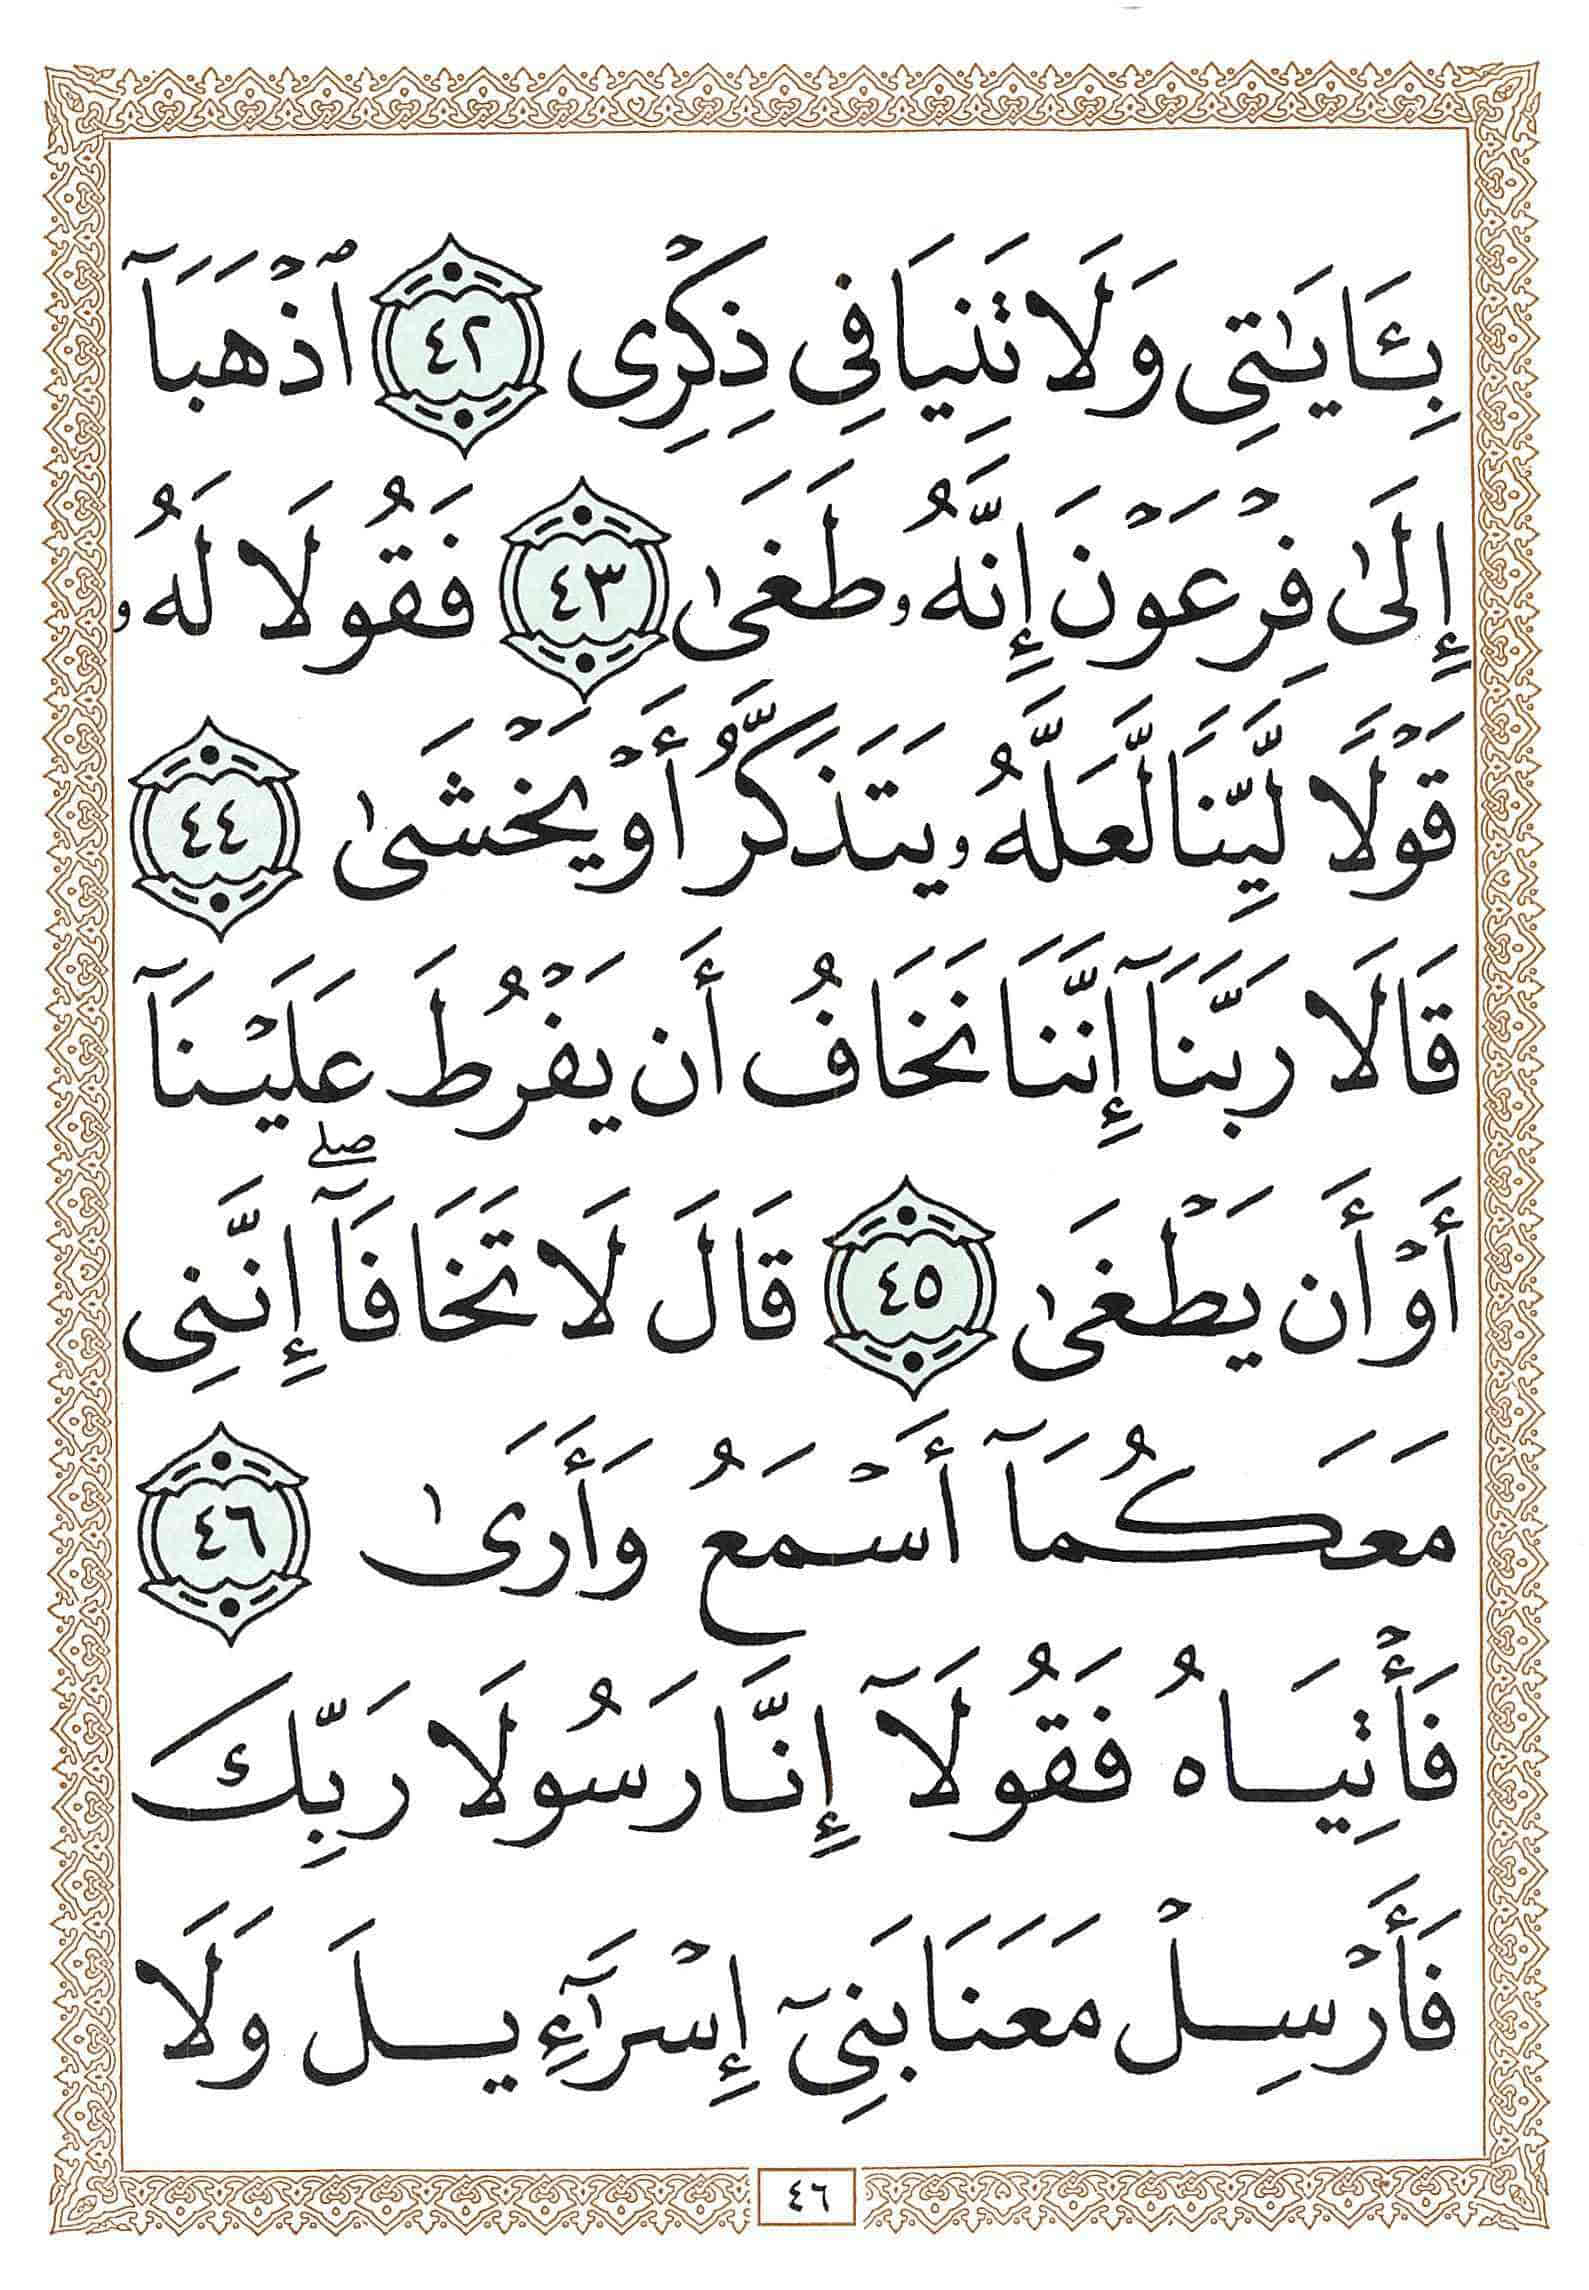 بِـَٔايَـٰتِى وَلَا تَنِيَا فِى ذِكْرِى ٤٢ ٱذْهَبَآ
إِلَىٰ فِرْعَوْنَ إِنَّهُۥ طَغَىٰ ٤٣ فَقُولَا لَهُۥ
قَوْلًا لَّيِّنًا لَّعَلَّهُۥ يَتَذَكَّرُ أَوْ يَخْشَىٰ ٤٤
قَالَا رَبَّنَآ إِنَّنَا نَخَافُ أَن يَفْرُطَ عَلَيْنَآ
أَوْ أَن يَطْغَىٰ ٤٥ قَالَ لَا تَخَافَآ ۖ إِنَّنِى
مَعَكُمَآ أَسْمَعُ وَأَرَىٰ ٤٦
فَأْتِيَاهُ فَقُولَآ إِنَّا رَسُولَا رَبِّكَ
فَأَرْسِلْ مَعَنَا بَنِىٓ إِسْرَٰٓءِيلَ وَلَا
٤٦